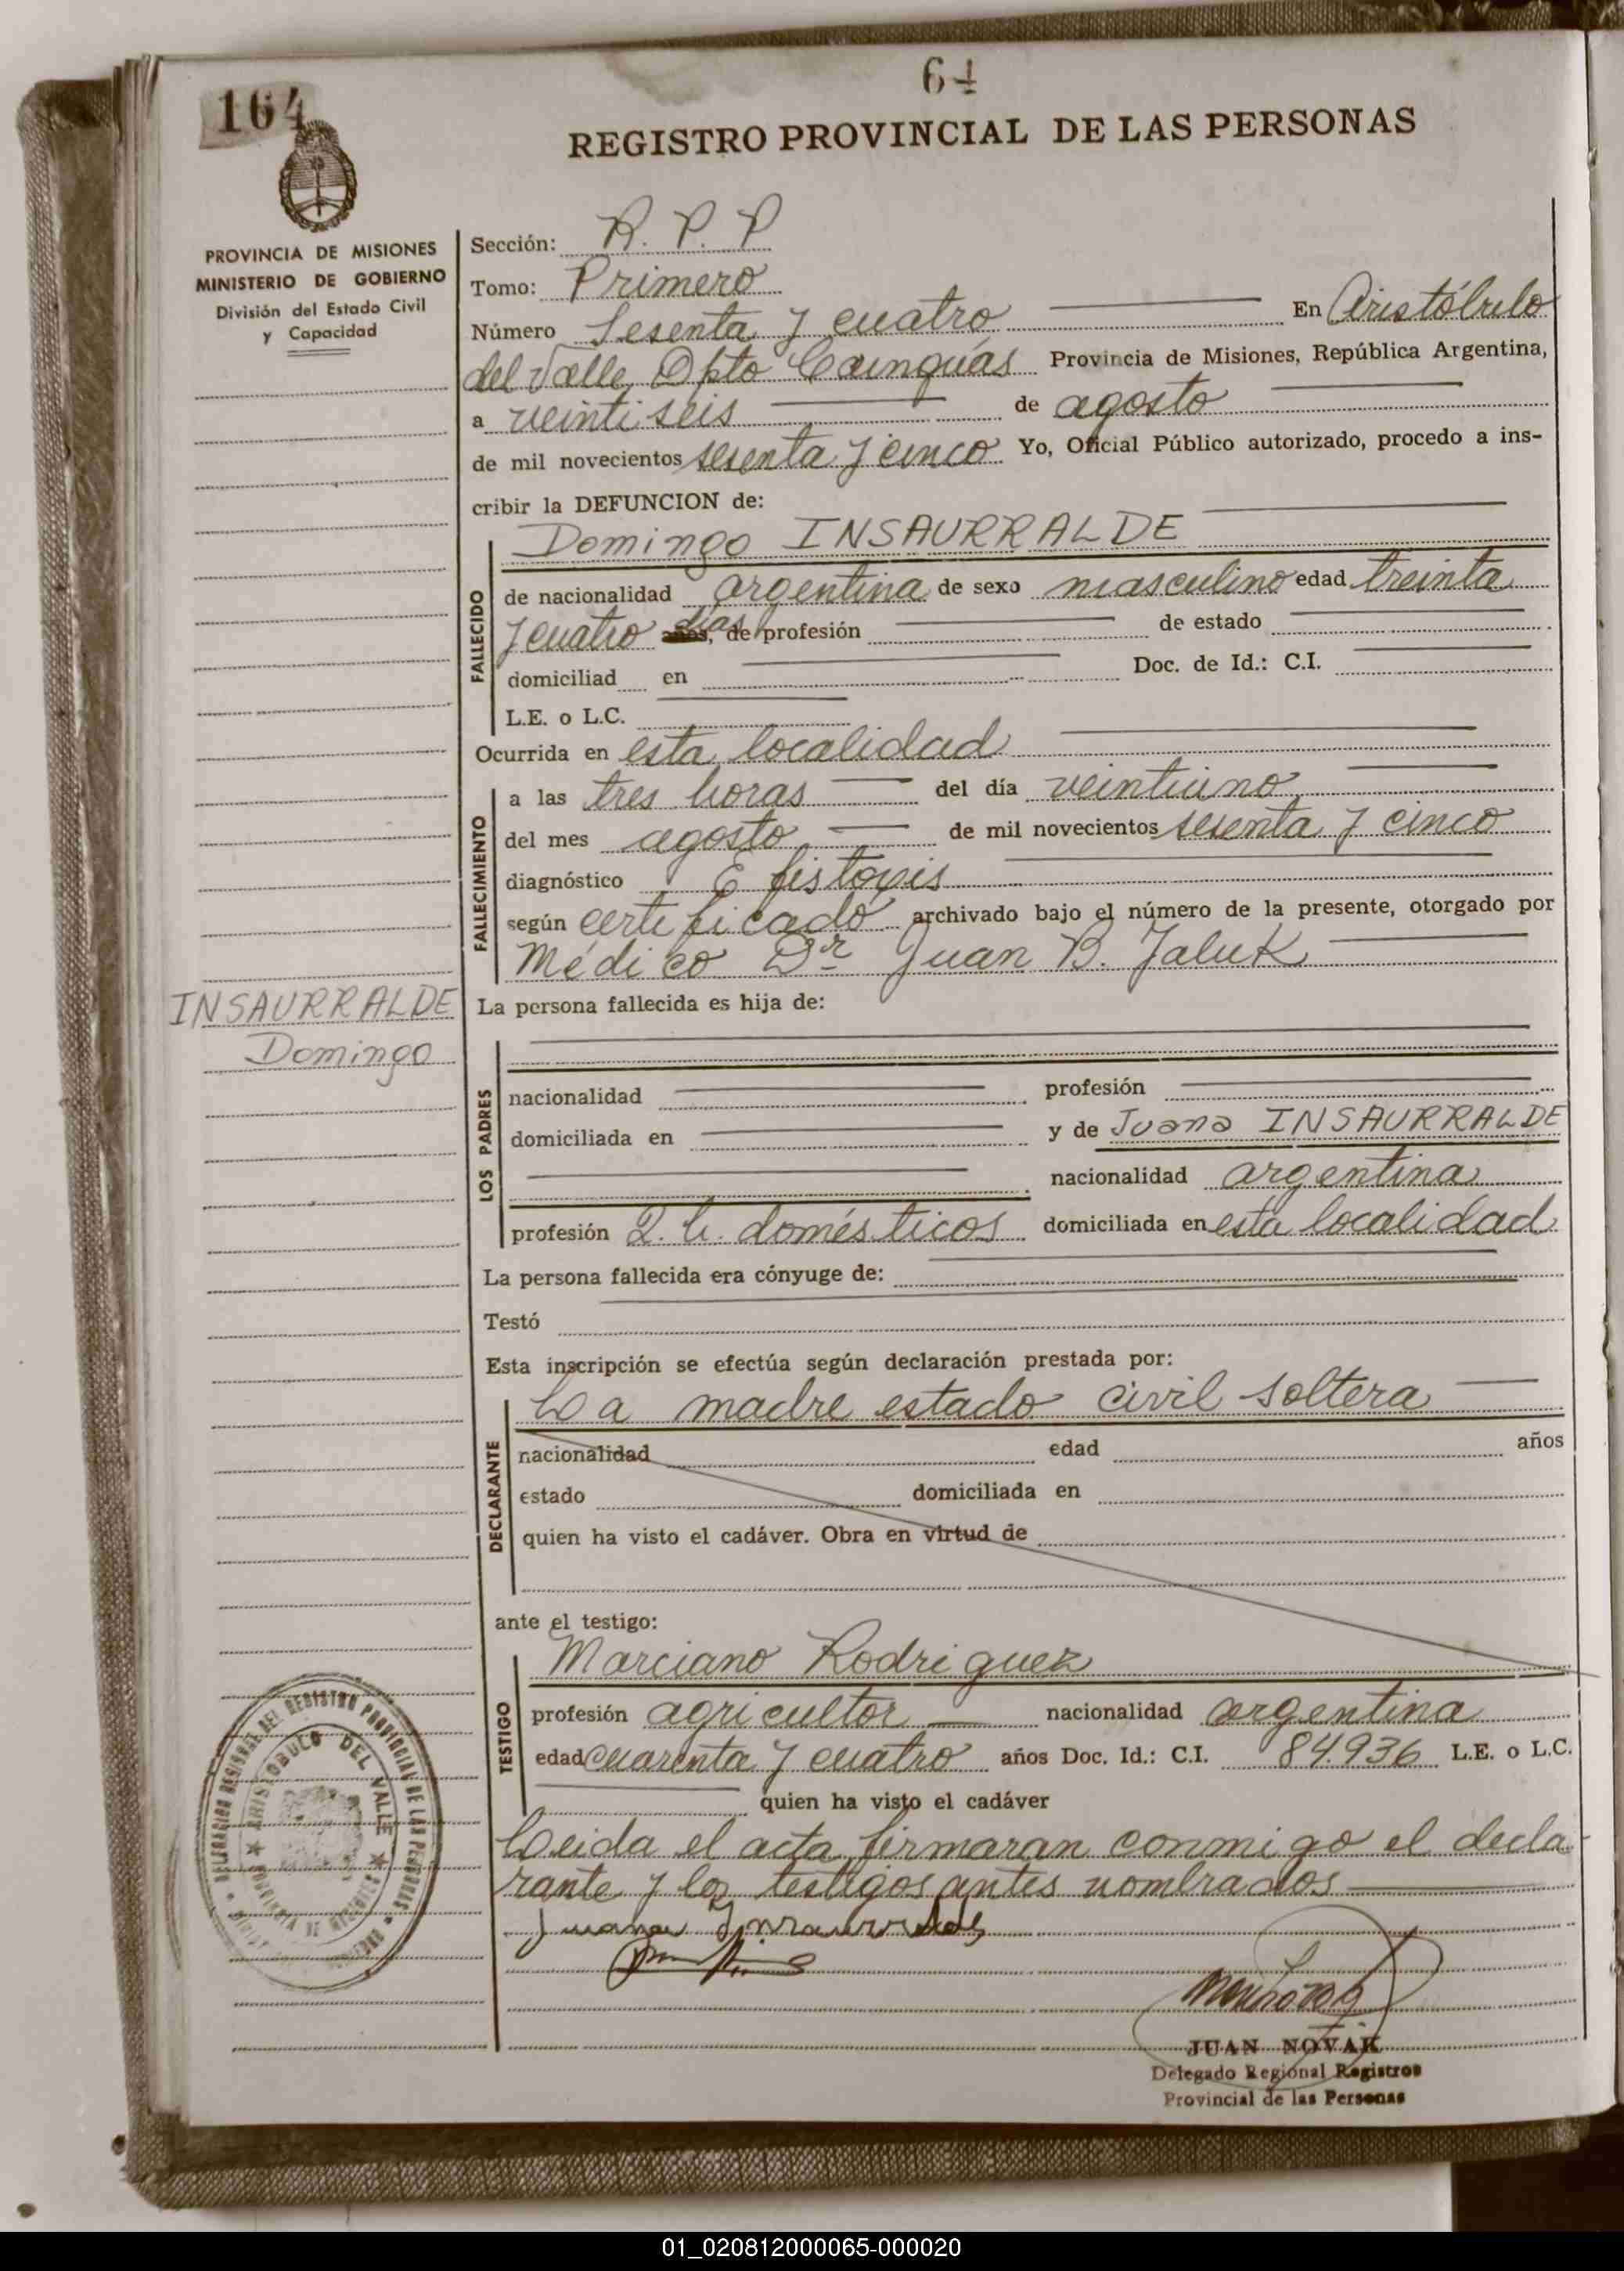 164
64
REGISTRO PROVINCIAL DE LAS PERSONAS
PROVINCIA DE MISIONES
MINISTERIO DE GOBIERNO
División del Estado Civil
y Capacidad
Sección: R. P. P
Tomo: Primero
Número Sesenta y cuatro En Aristóbulo
del Valle, Dpto Cainguás Provincia de Misiones, República Argentina,
a veintiseis de agosto
de mil novecientos sesenta y cinco Yo, Oficial Público autorizado, procedo a ins-
cribir la DEFUNCION de:
Domingo INSAURRALDE
FALLECIDO
de nacionalidad argentina de sexo masculino edad treinta
y cuatro días, de profesión de estado
domiciliad en Doc. de Id.: C.I.
L.E. o L.C.
Ocurrida en esta localidad
FALLECIMIENTO
a las tres horas del día veintiuno
del mes agosto de mil novecientos sesenta y cinco
diagnóstico
según certificado archivado bajo el número de la presente, otorgado por
Médico Dr Juan B. Jaluk
INSAURRALDE
Domingo
La persona fallecida es hija de:
LOS PADRES
nacionalidad profesión
domiciliada en y de Juana INSAURRALDE
nacionalidad argentina
profesión Q. h. domésticos domiciliada en esta localidad
La persona fallecida era cónyuge de:
Testó
Esta inscripción se efectúa según declaración prestada por:
DECLARANTE
La madre estado civil soltera
nacionalidad edad años
estado domiciliada en
quien ha visto el cadáver. Obra en virtud de
ante el testigo:
TESTIGO
Marciano Rodriguez
profesión agricultor nacionalidad argentina
edad cuarenta y cuatro años Doc. Id.: C.I. 84.936 L.E. o L.C.
quien ha visto el cadáver
Leida el acta firmaran conmigo el decla-
rante y los testigos antes nombrados
Juana Insaurralde
DELEGACION REGIONAL DEL REGISTRO PROVINCIAL DE LAS PERSONAS
ARISTOBULO DEL VALLE
JUAN NOVAK
Delegado Regional Registros
Provincial de las Personas
01_020812000065-000020